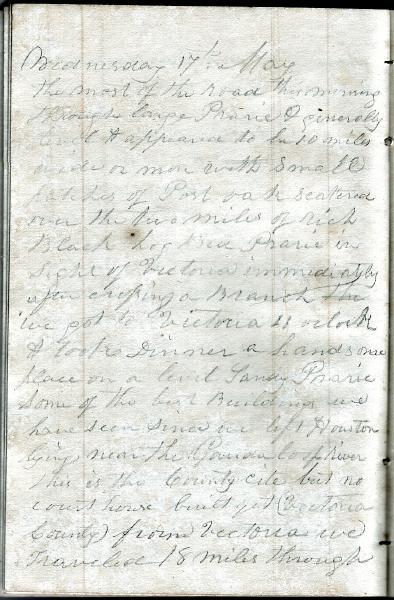 Wednesday 17th May
The most of the road this morning
through large Prarie & generally
level & appeared to be 10 miles
wide or more with Small
patches of Post oak scatered
over the two miles of rich
Black Hog Bed Prarie in
Sight of Victoria immediately
after crossing a Branch the
we got to Victoria 11 oclock
& took Dinner a handsome
place on a level Sandy Prarie
Some of the best Buildings we
have seen since we left Houston
lying near the River
this is the County cite but no
court house built yet (Victoria
County) from Victoria we
Traveled 18 miles through